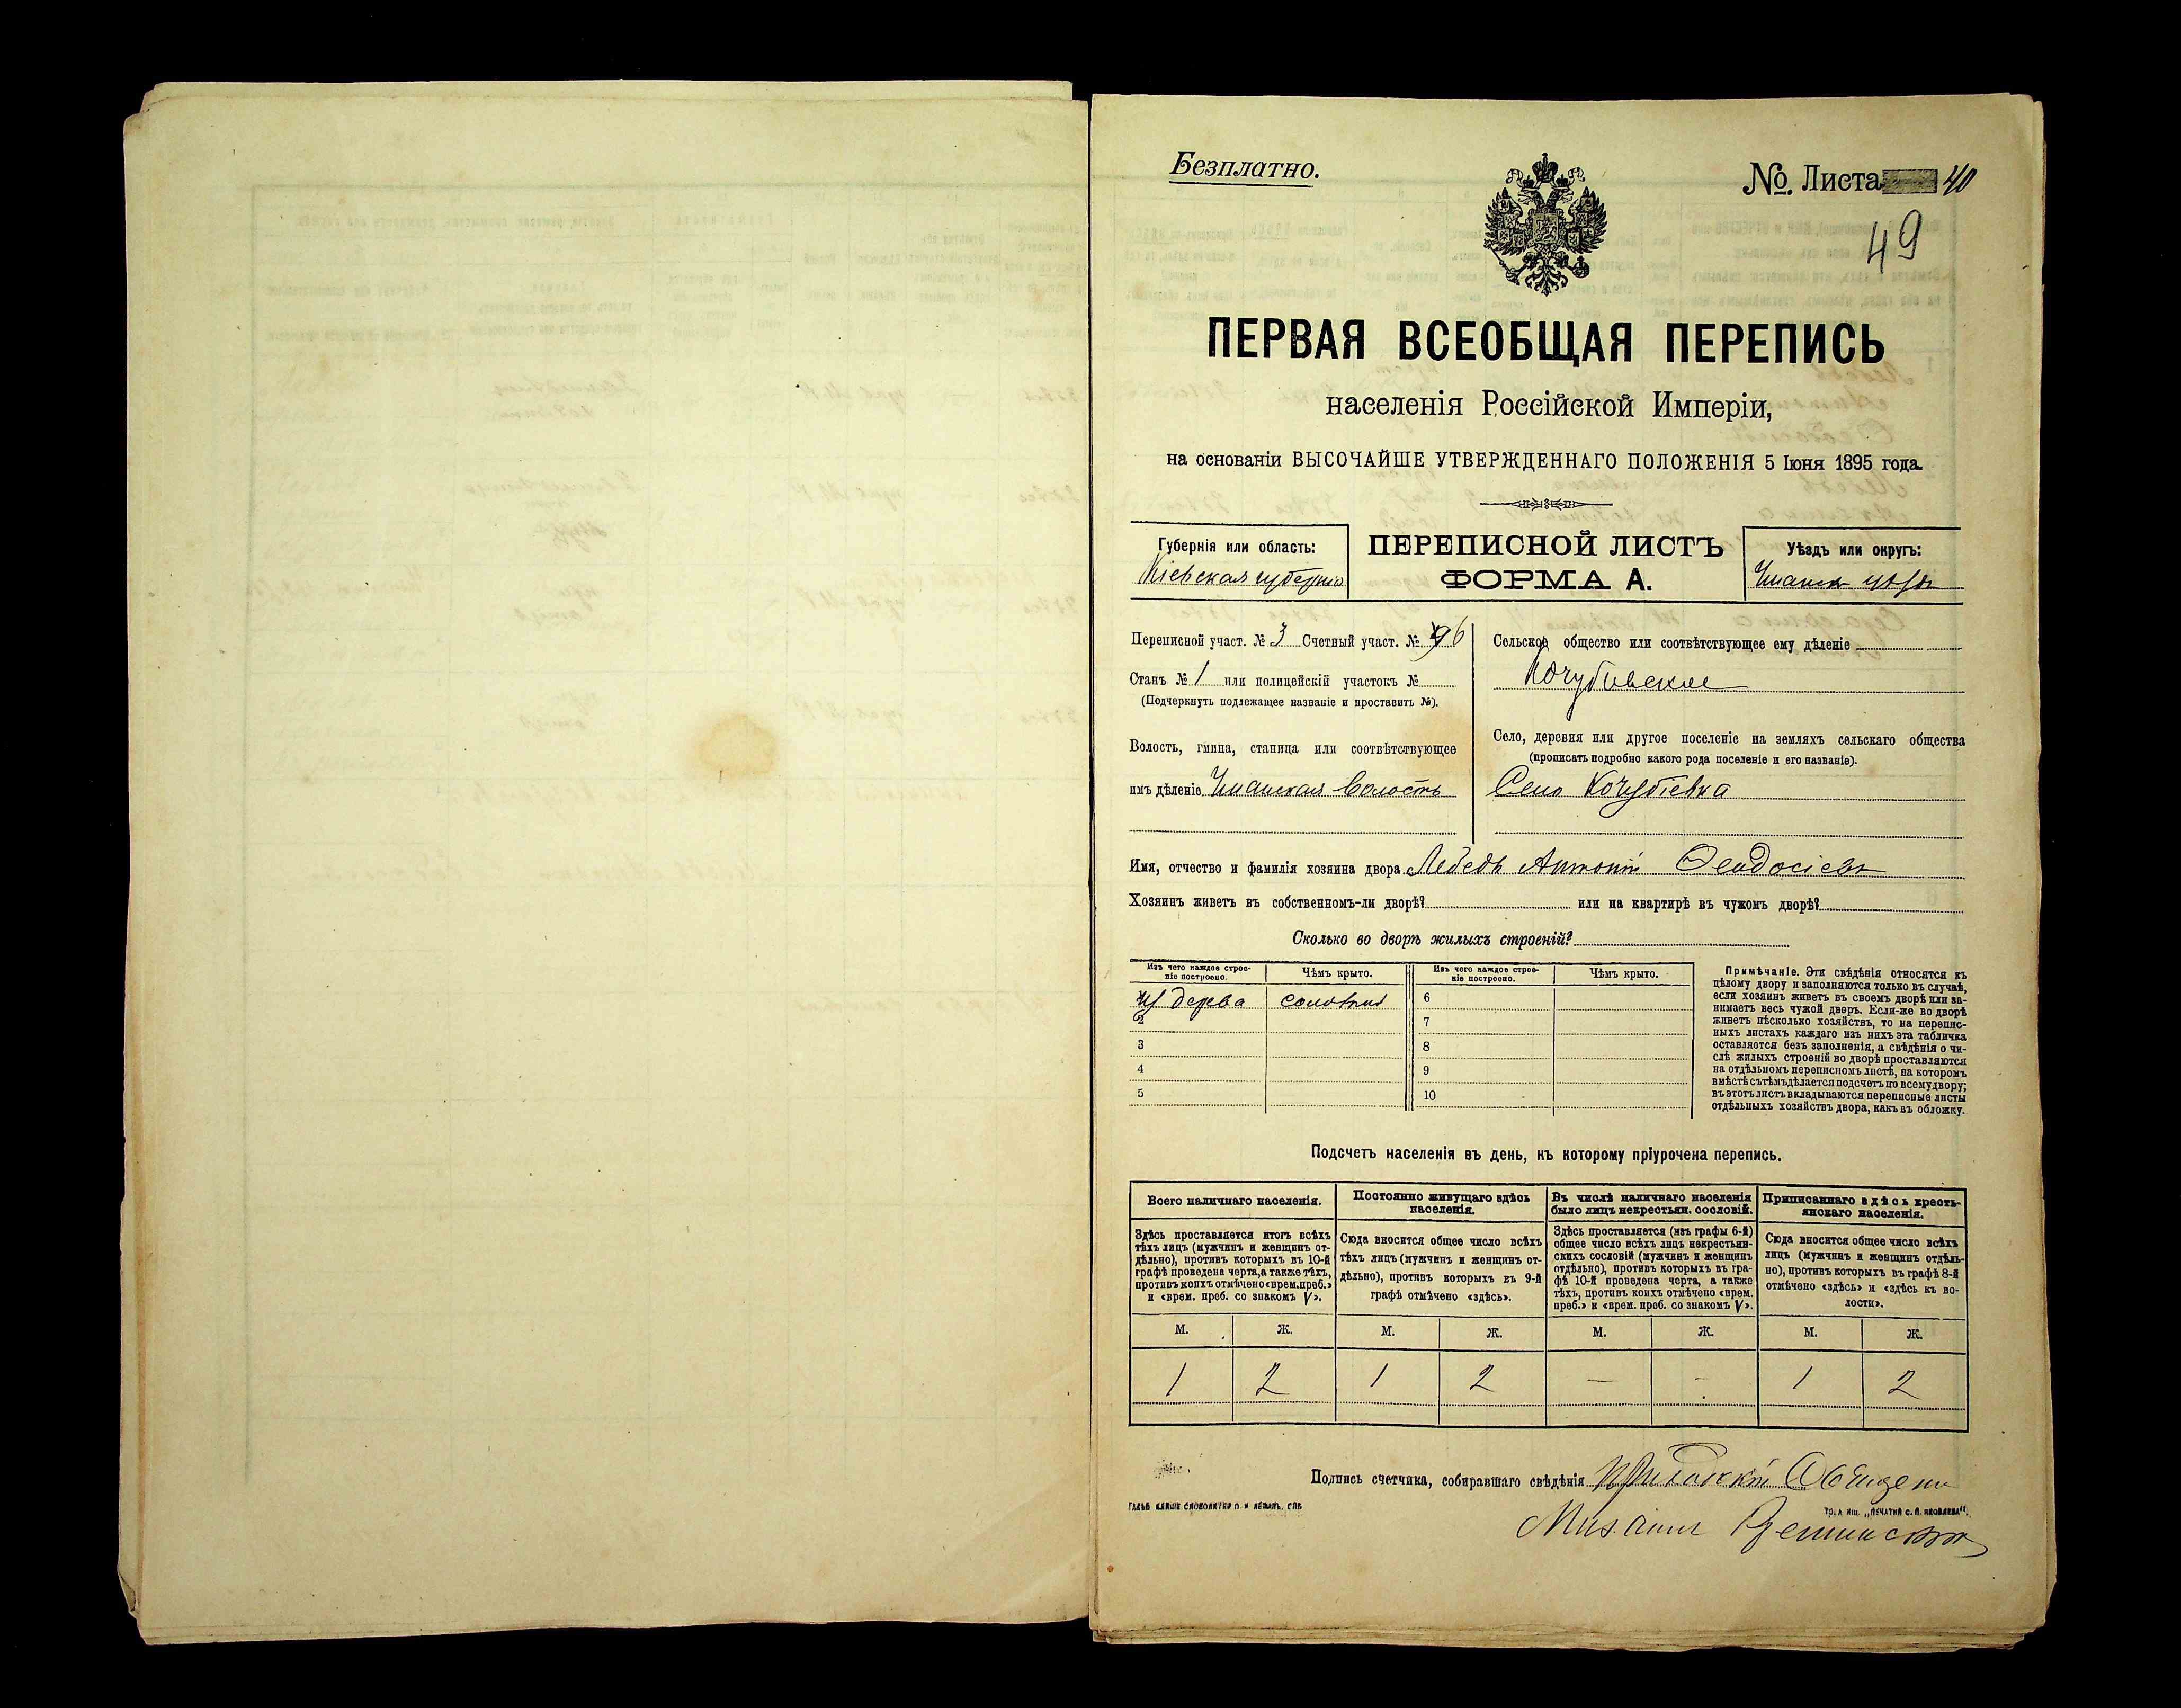 Безплатно.
№ Листа 40
49
ПЕРВАЯ ВСЕОБЩАЯ ПЕРЕПИСЬ
населенія Россійской Имперіи,
на основаніи ВЫСОЧАЙШЕ УТВЕРЖДЕННАГО ПОЛОЖЕНІЯ 5 Іюня 1895 года.
Губернія или область:
Кіевская губернія
ПЕРЕПИСНОЙ ЛИСТЪ
ФОРМА А.
Уѣздъ или округъ:
Переписной участ. № 3 Счетный участ. №
Станъ № 1 или полицейскій участокъ №
(Подчеркнуть подлежащее названіе и проставить №).
Волость, гмина, станица или соотвѣтствующее
имъ дѣленіе Уманская Волость
Сельское общество или соотвѣтствующее ему дѣленіе
Село, деревня или другое поселеніе на земляхъ сельскаго общества
(прописать подробно какого рода поселеніе и его названіе).
Село Кочубіевка
Имя, отчество и фамилія хозяина двора Лебедь Антоній Ѳеодосіевъ
Хозяинъ живетъ въ собственномъ-ли дворѣ? или на квартирѣ въ чужомъ дворѣ?
Сколько во дворѣ жилыхъ строеній?
Изъ чего каждое строе-
ніе построено.
Чѣмъ крыто.
изъ дерева
2
3
4
5
Изъ чего каждое строе-
ніе построено.
Чѣмъ крыто.
6
7
8
9
10
Примѣчаніе. Эти свѣдѣнія относятся къ
цѣлому двору и заполняются только въ случаѣ,
если хозяинъ живетъ въ своемъ дворѣ или за-
нимаетъ весь чужой дворъ. Если-же во дворѣ
живетъ нѣсколько хозяйствъ, то на перепис-
ныхъ листахъ каждаго изъ нихъ эта табличка
оставляется безъ заполненія, а свѣдѣнія о чи-
слѣ жилыхъ строеній во дворѣ проставляются
на отдѣльномъ переписномъ листѣ, на которомъ
вмѣстѣ съ тѣмъ дѣлается подсчетъ по всему двору;
въ этотъ листъ вкладываются переписные листы
отдѣльныхъ хозяйствъ двора, какъ въ обложку.
Подсчетъ населенія въ день, къ которому пріурочена перепись.
Всего наличнаго населенія.
Здѣсь проставляется итогъ всѣхъ
тѣхъ лицъ (мужчинъ и женщинъ от-
дѣльно), противъ которыхъ въ 10-й
графѣ проведена черта, а также тѣхъ,
противъ коихъ отмѣчено «врем. преб.»
и «врем. преб. со знакомъ V».
М. Ж.
1 2
Постоянно живущаго здѣсь
населенія.
Сюда вносится общее число всѣхъ
тѣхъ лицъ (мужчинъ и женщинъ от-
дѣльно), противъ которыхъ въ 9-й
графѣ отмѣчено «здѣсь».
М. Ж.
1 2
Въ числѣ наличнаго населенія
было лицъ некрестьян. сословій.
Здѣсь проставляется (изъ графы 6-й)
общее число всѣхъ лицъ некрестьян-
скихъ сословій (мужчинъ и женщинъ
отдѣльно), противъ которыхъ въ гра-
фѣ 10-й проведена черта, а также
тѣхъ, противъ коихъ отмѣчено «врем.
преб.» и «врем. преб. со знакомъ V».
М. Ж.
— —
Приписаннаго здѣсь кресть-
янскаго населенія.
Сюда вносится общее число всѣхъ
лицъ (мужчинъ и женщинъ отдѣль-
но), противъ которыхъ въ графѣ 8-й
отмѣчено «здѣсь» и «здѣсь къ во-
лости».
М. Ж.
1 2
Подпись счетчика, собиравшаго свѣдѣнія
Михаилъ